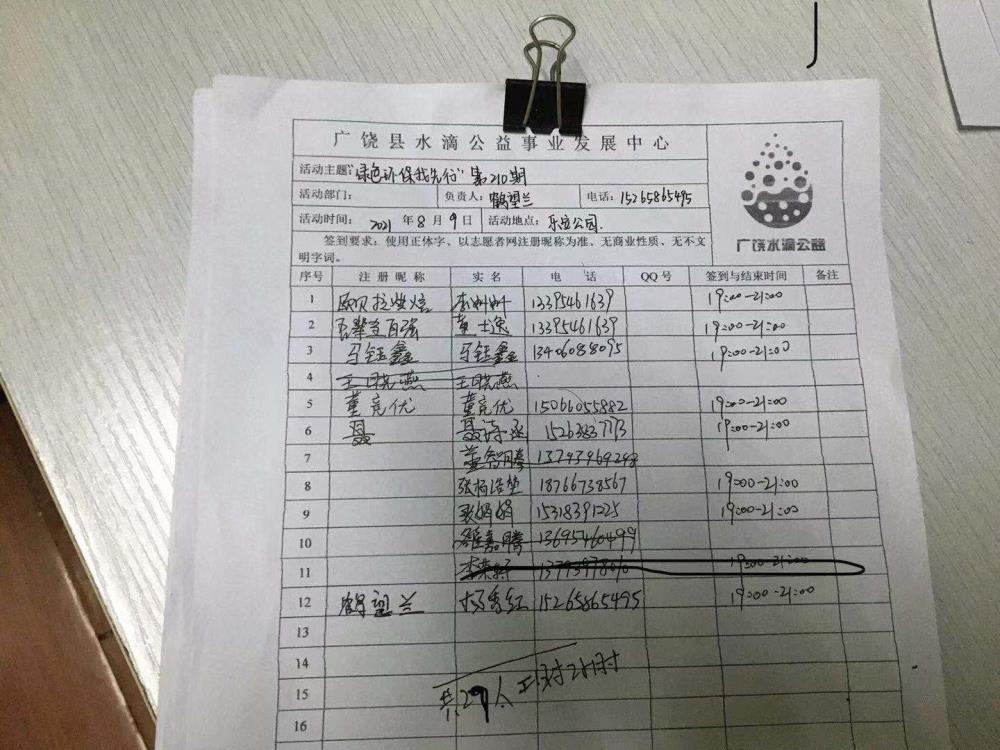 广饶县水滴公益事业发展中心
活动主题："绿色环保我先行" 第210期
活动部门： 负责人：鹤望兰 电话：15265865495
活动时间： 2021年8月9日 活动地点：乐安公园.
签到要求：使用正体字、以志愿者网注册昵称为准、无商业性质、无不文
明字词。
广饶水滴公益
序号 注册昵称 实名 电话 QQ号 签到与结束时间 备注
1 欧贝拉 13395461639 19:00-21:00
2 董士逸 13395461639 19:00-21:00
3 马钰鑫 马钰鑫 13406088095 19:00-21:00
4 王晓燕 王晓燕
5 董竞优 董竞优 15066055882 19:00-21:00
6 聂 聂诗丞 15263837713 19:00-21:00
7 董智腾 13793969248
8 18766738567 19:00-21:00
9 娟娟 15318391225 19:00-21:00
10 嘉腾 13695460499
11 19:00-21:00
12 鹤望兰 杨秀红 15265865495 19:00-21:00
13
14
15 共29人
16